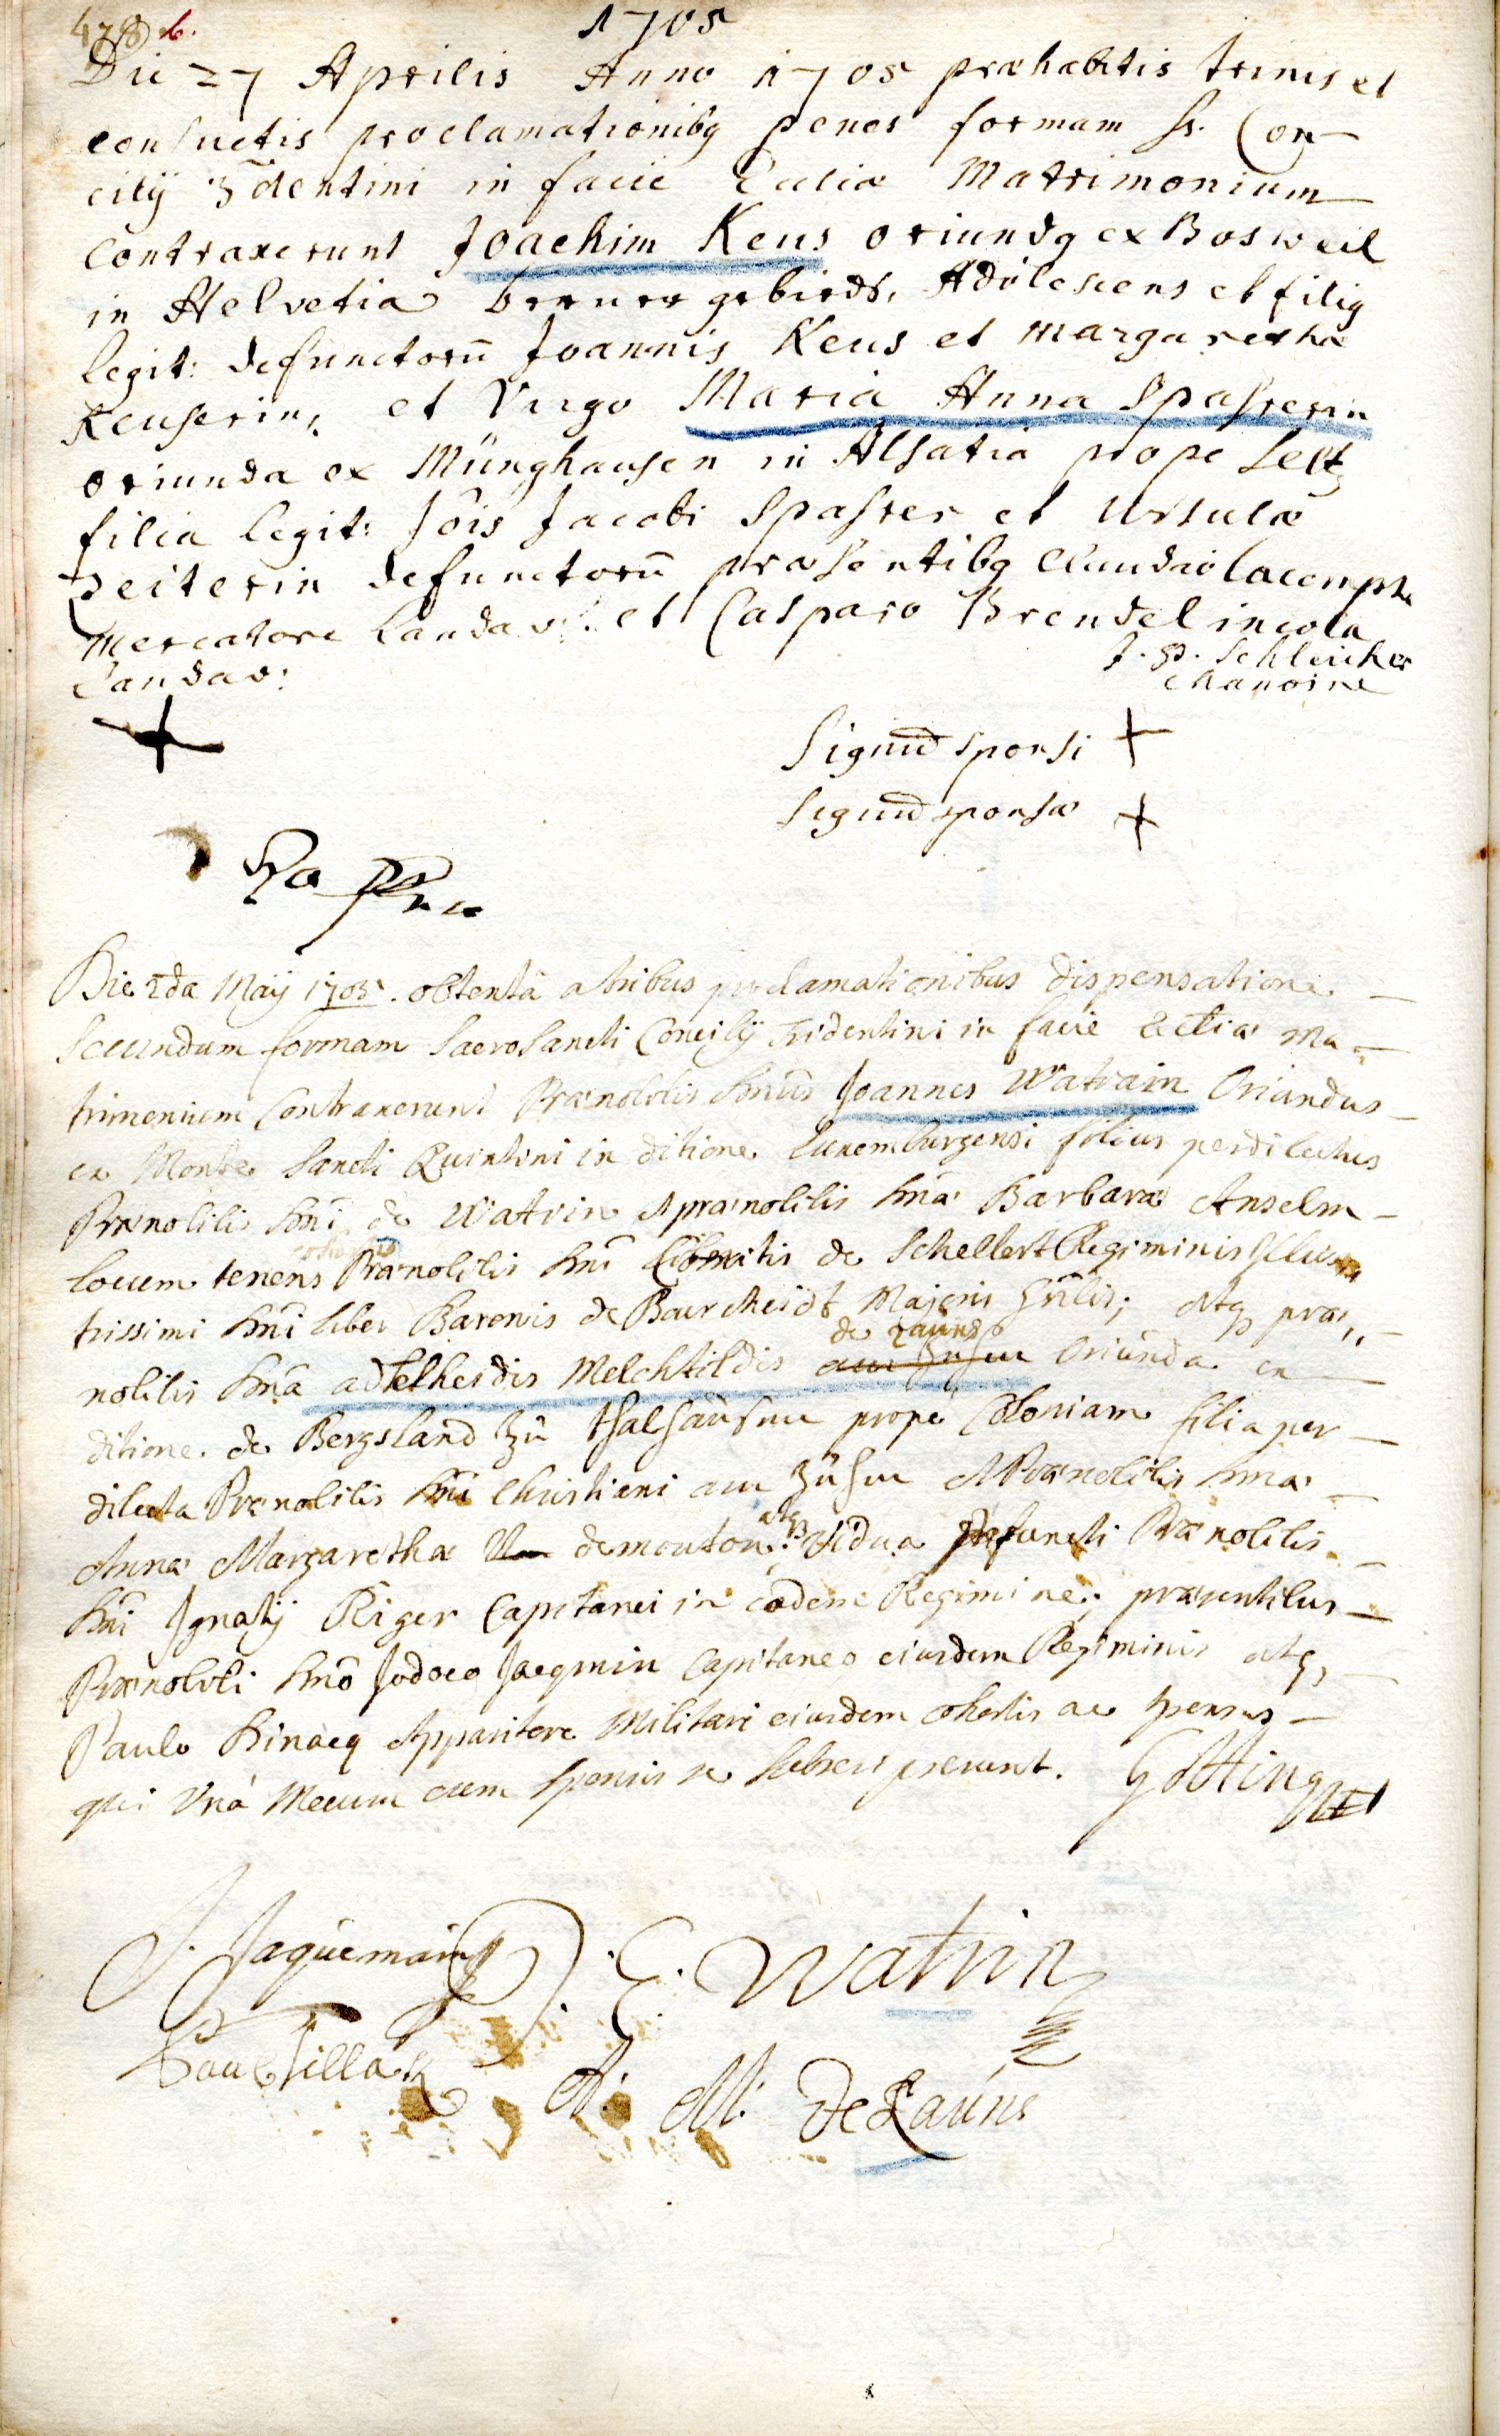 478 b.
1705
Die 27 Aprilis Anno 1705 præhabitis trinis et
consuetis proclamationibq penes formam ss. Con-
cilÿ Tdentini in facie Eccliæ Matrimonium
contraxerunt Joachim Keus oriundq ex Bosweil
in Helvetia berner gebieds, Adolescens et filiq
legit: defunctorū Joannis Keus et Margarethæ
Keuserin, et Virgo Maria Anna Spasterin
oriunda ex Münghausen in Alsatia prope Seltz
filia legit: Jois Jacobi Spaster et Ursulæ
defunctorū præsentibq Claudio
Mercatore Landav: et Casparo Brendel incola
Landav:
J. P. Schleicher
Chanoine
Signū sponsi +
Signū sponsæ +
Die 2da Maÿ 1705. obtentâ a tribus proclamationibus dispensatione
Secundum formam Sacrosancti Concilÿ Tridentini in facie Ecliæ Ma-
trimonium Contraxerunt Prænobilis Dnūs Joannes Watrain Oriundus
ex Monte Sancti Quintini in ditione Luxemburgensi filius perdilectus
Prænobilis Dni de Watrin et prænobilis Dnæ Barbaræ Anselm
locum tenens Prænobilis Dni de Schellert Regiminis Illus-
trissimi Dni liber Baronis de Bourscheidt Majoris Gnlis; atq præ-
de Zauns
nobilis Dna adelheidis Melchtildis Oriunda ex
ditione de Bergsland zu Thalhausen prope Coloniam filia per-
dilecta Prænobilis Dni Christiani am Zuhn et Prænobilis Dnæ
Annæ Margarethæ demouton atq Vidua defuncti Prænobilis
Dni Ignatÿ Riger Capitanei in eodem Regimine; præsentibus
Prænobili Dno Jodoco Jaqmin Capitaneo eiusdem Regiminis atq,
Paulo Apparitore Militari eiusdem cohortis ac
qui Unâ Mecum cum Sponsis se Subscripserunt. Götting
J. Jaquemain J. E. Watrin
Paul
A. M. de Zauns